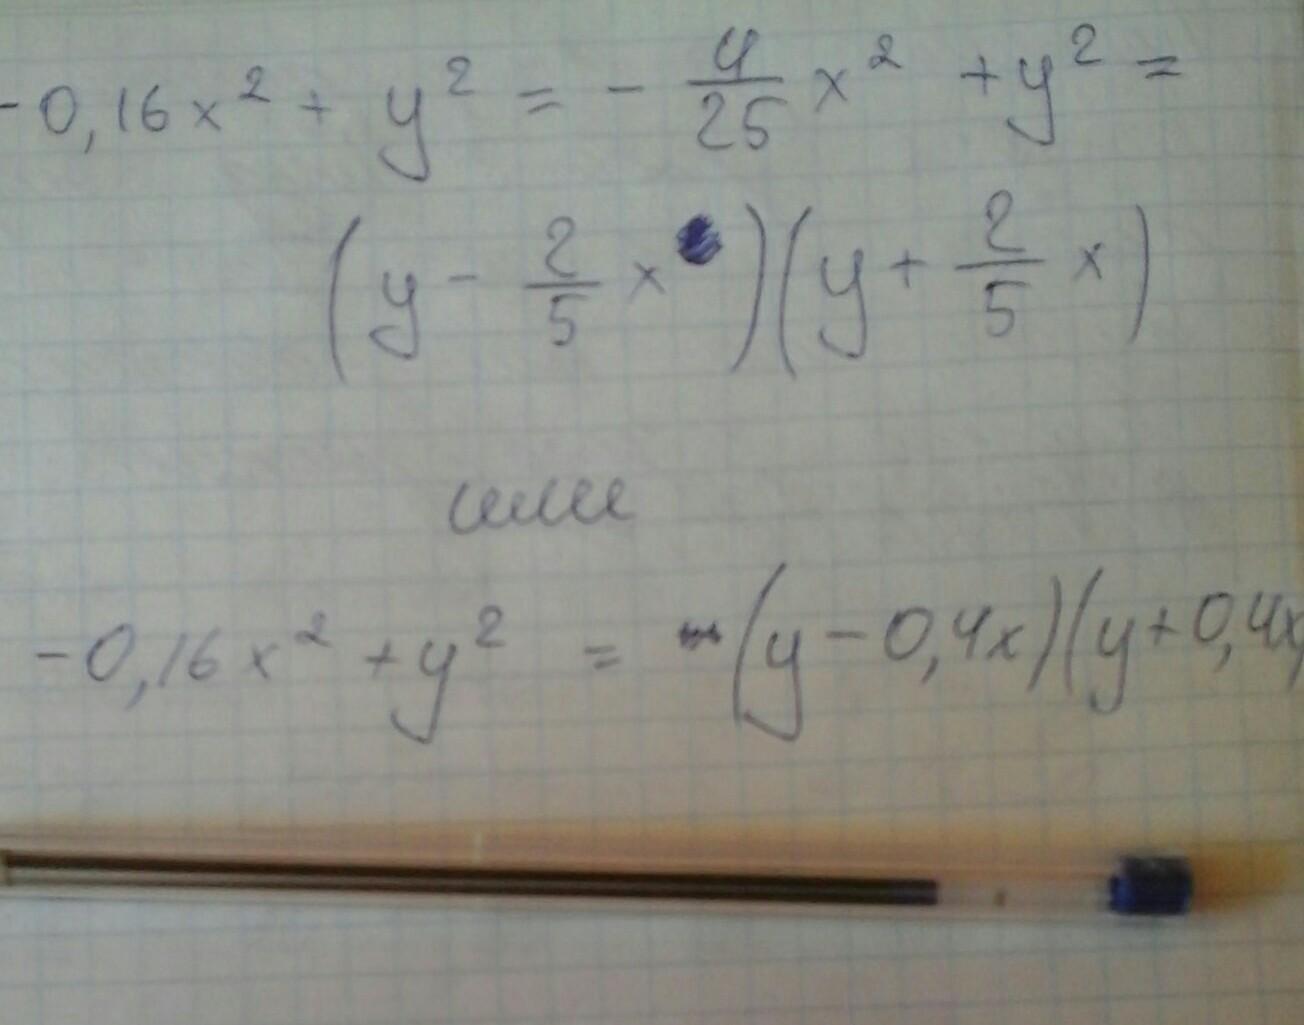 -0,16x² + y² = - 4/25 x² + y² =
(y - 2/5 x)(y + 2/5 x)
или
-0,16x² + y² = (y - 0,4x)(y + 0,4x)